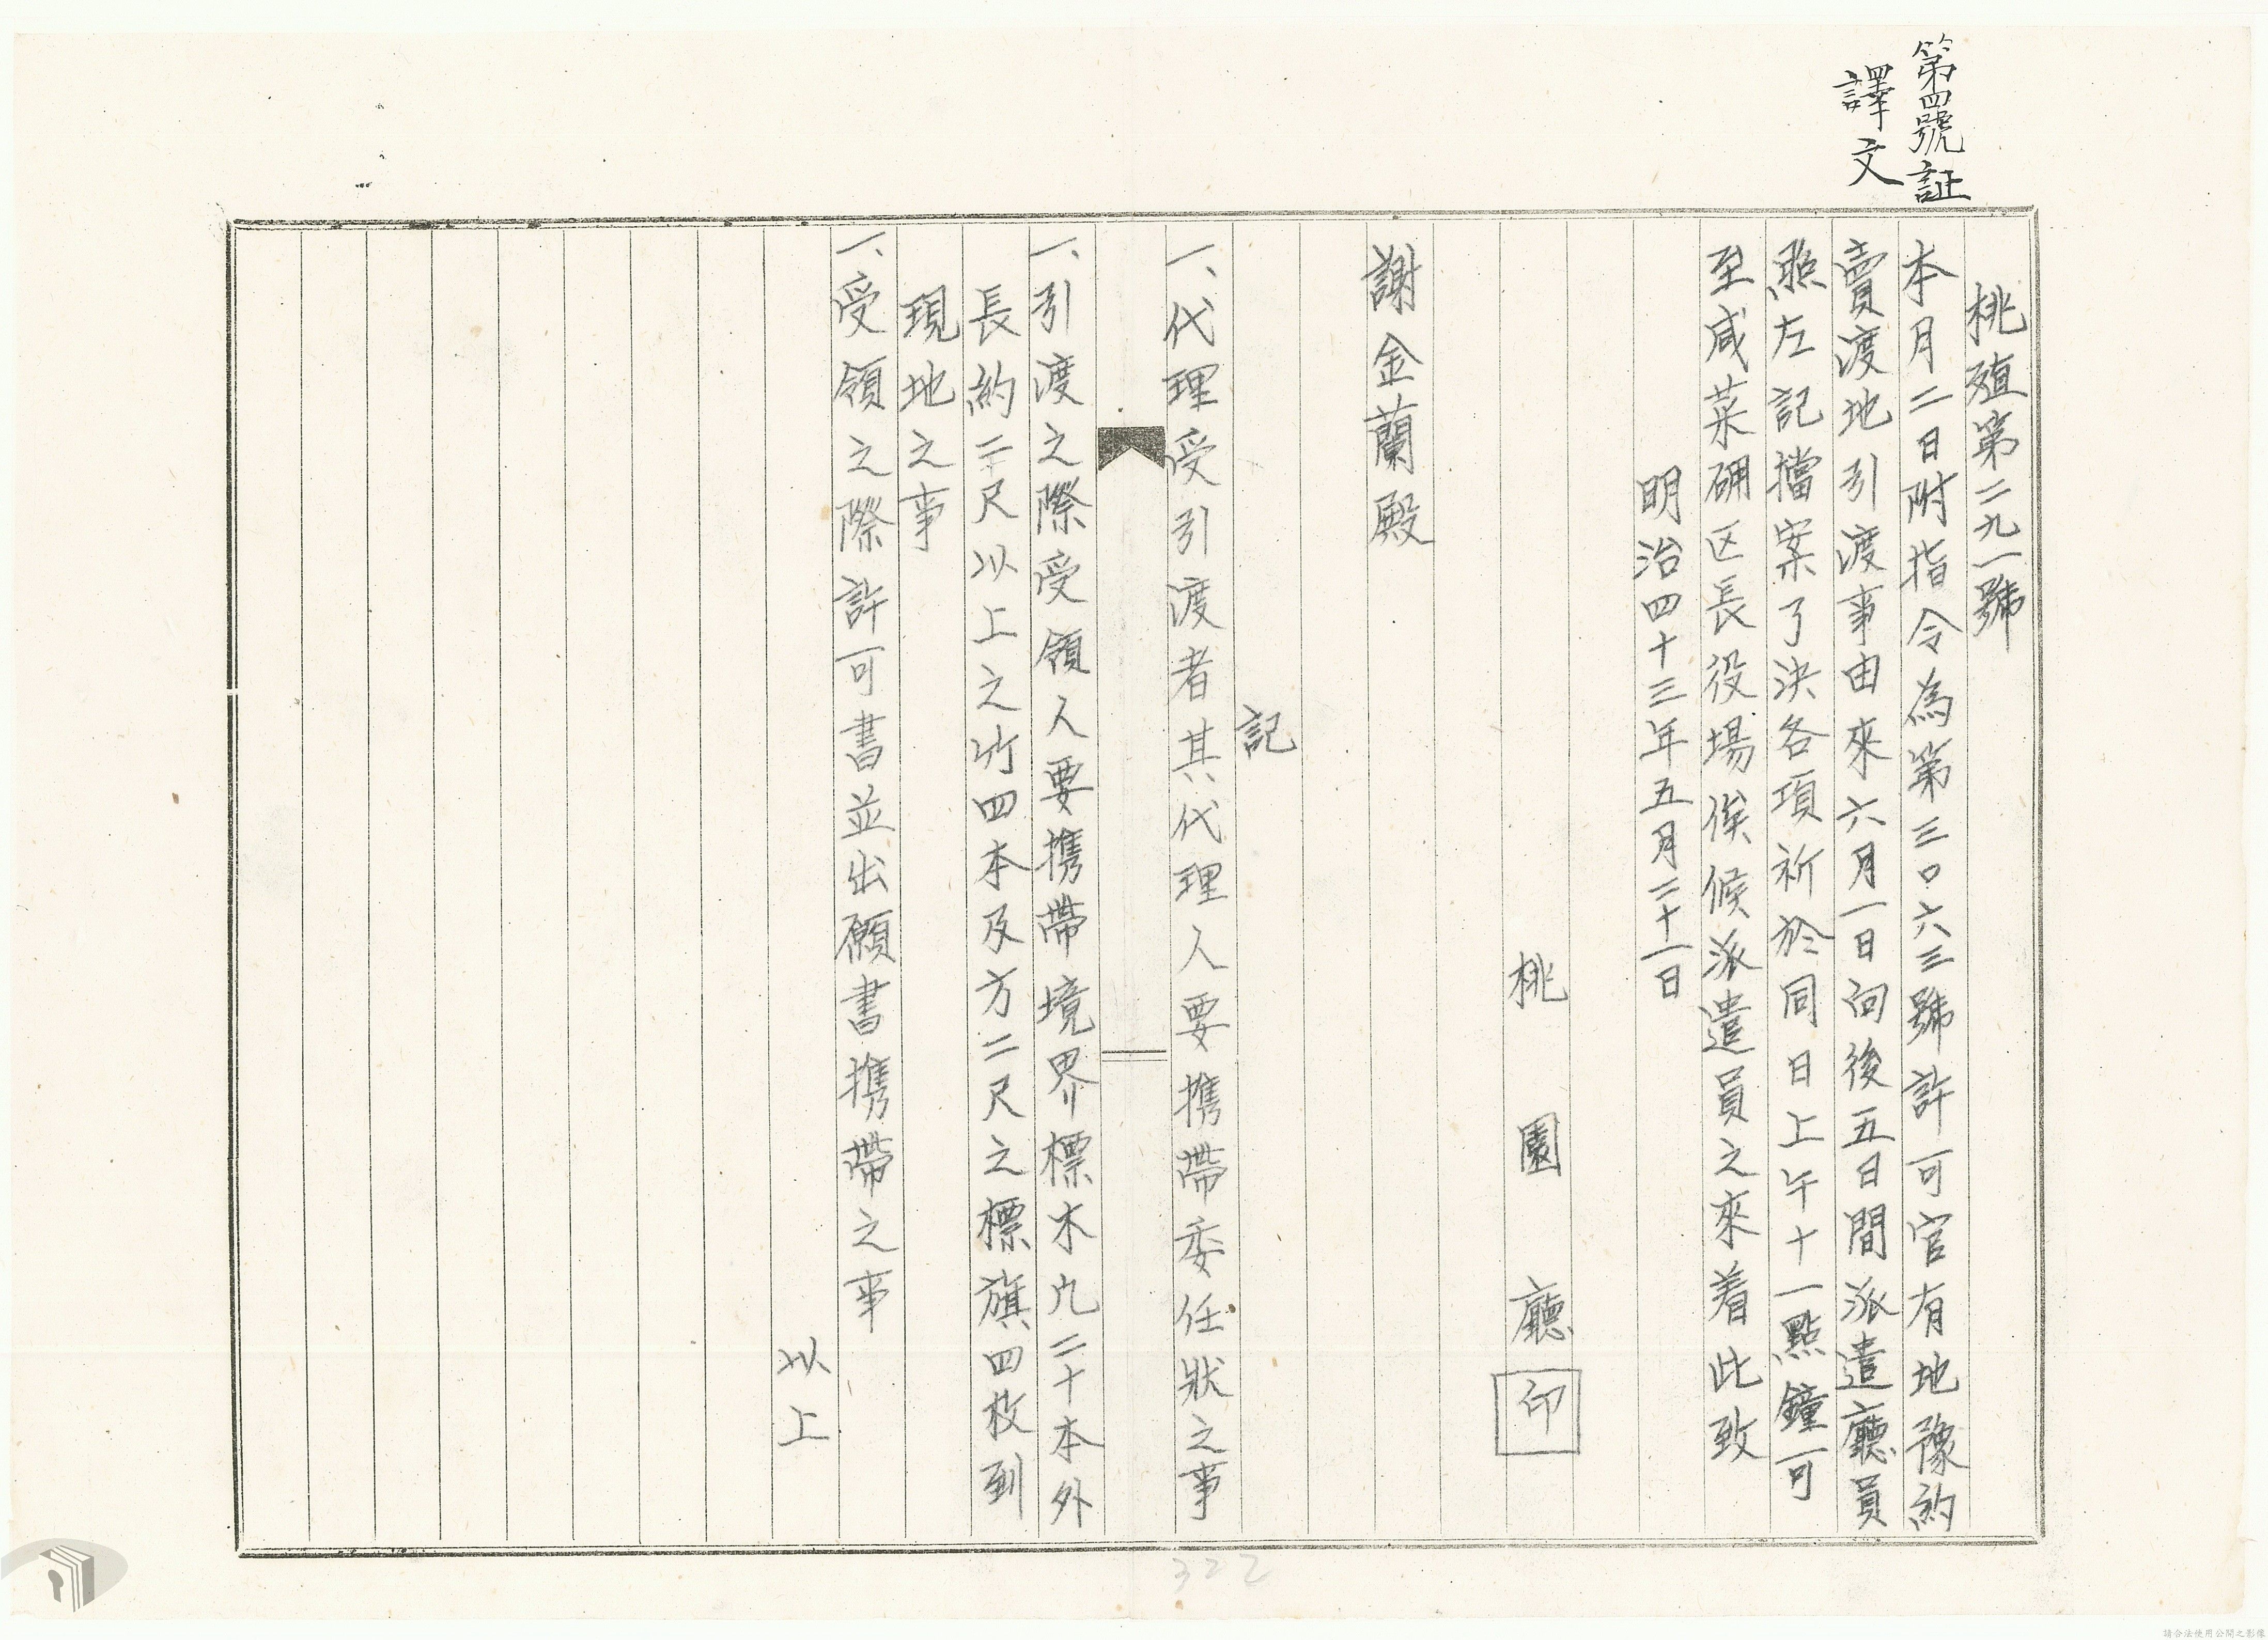 第四號証
譯文
桃殖第二九一號
本月二日附指令為第三〇六三號許可官有地豫約
賣渡地引渡事由來六月一日向後五日間派遣廳員
照左記擋案了決各項祈於同日上午十一點鐘可
至咸菜硼区長役場俟候派遣員之來着此致
明治四十三年五月二十一日
桃園廳印
謝金蘭殿
記
一、代理受引渡者其代理人要携帶委任狀之事
一、引渡之際受領人要携帶境界標木九二十本外
長約二尺以上之竹四本及方二尺之標旗四枚到
現地之事
一、受領之際許可書並出願書携帶之事
以上
322
請合法使用公開之影像